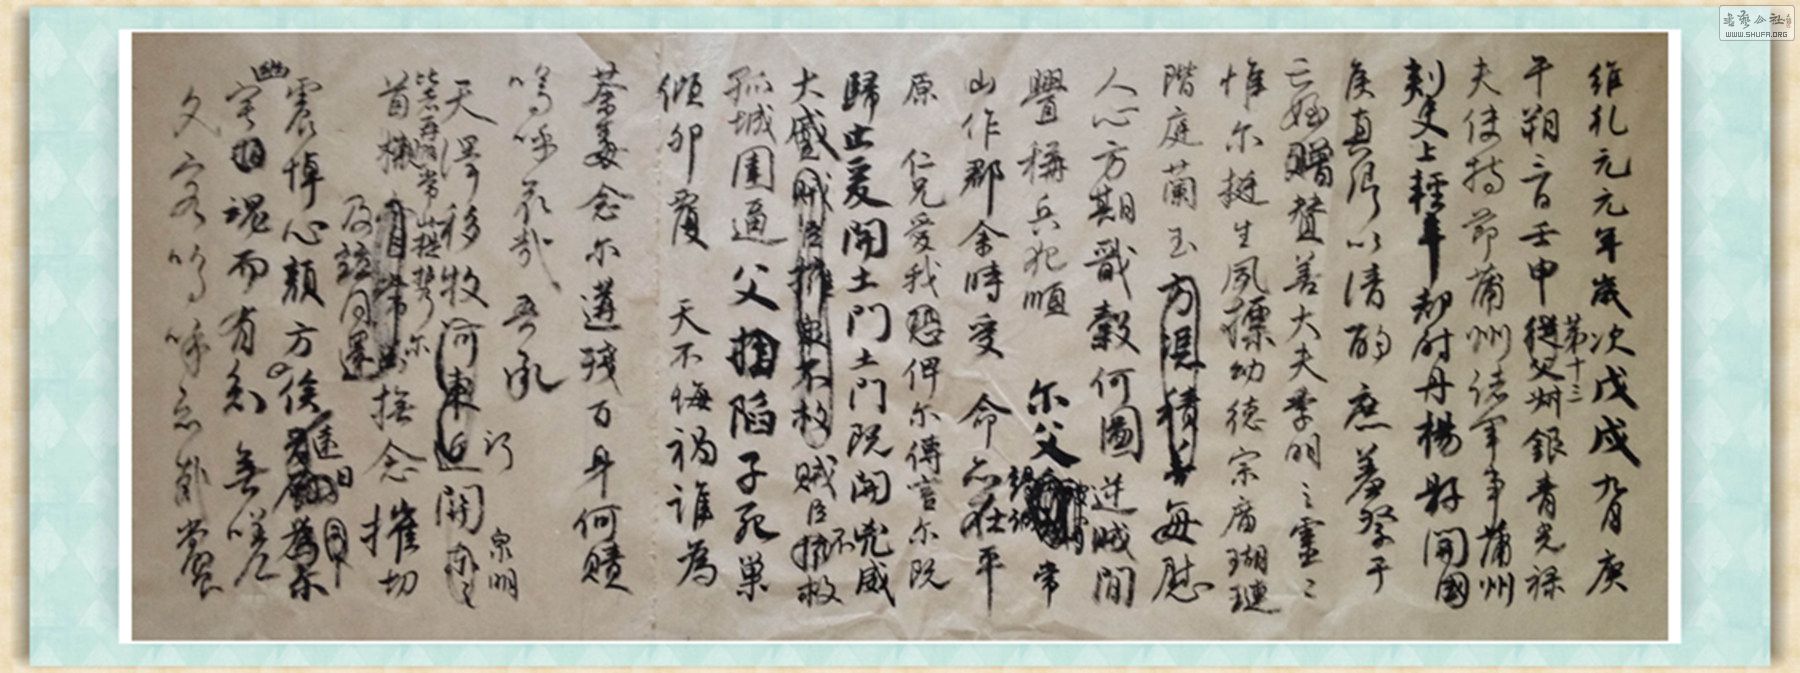 維乾元元年歲次戊戌九月庚
午朔三日壬申從父
第十三
叔銀青光祿
夫使持節蒲州諸軍事蒲州
刺史上輕車都尉丹楊縣開國
侯真卿以清酌庶羞祭于
亡姪贈贊善大夫季明之靈
惟爾挺生夙標幼德宗廟瑚璉
階庭蘭玉方憑積善每慰
人心方期戩穀何圖逆賊間
釁稱兵犯順
爾父
竭誠
常
山作郡余時受命亦在平
原仁兄愛我恐俾爾傳言爾既
歸止爰開土門土門既開兇威
大蹙賊臣擁眾不救賊臣擁
不
救
孤城圍逼父擒陷子死巢
傾卵覆天不悔禍誰為
荼毒念爾遘殘百身何贖
嗚呼哀哉吾承
天澤移牧河東近
河
關
泉明
比者再陷常山攜
爾
首櫬
及茲同還
撫念摧切
震悼心顏方俟
遠日
為爾
幽
宅
魂而有知無嗟
久客嗚呼哀哉尚饗
書藝公社
WWW.SHUFA.ORG